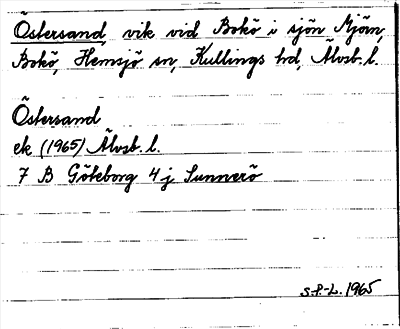 Östersand, vik vid Bokö i sjön Mjörn,
Bokö, Hemsjö sn, Kullings hd, Älvsb. l.
Östersand
ek (1965) Älvsb. l.
7 B Göteborg 4 j Sunnerö
S.P.-L. 1965